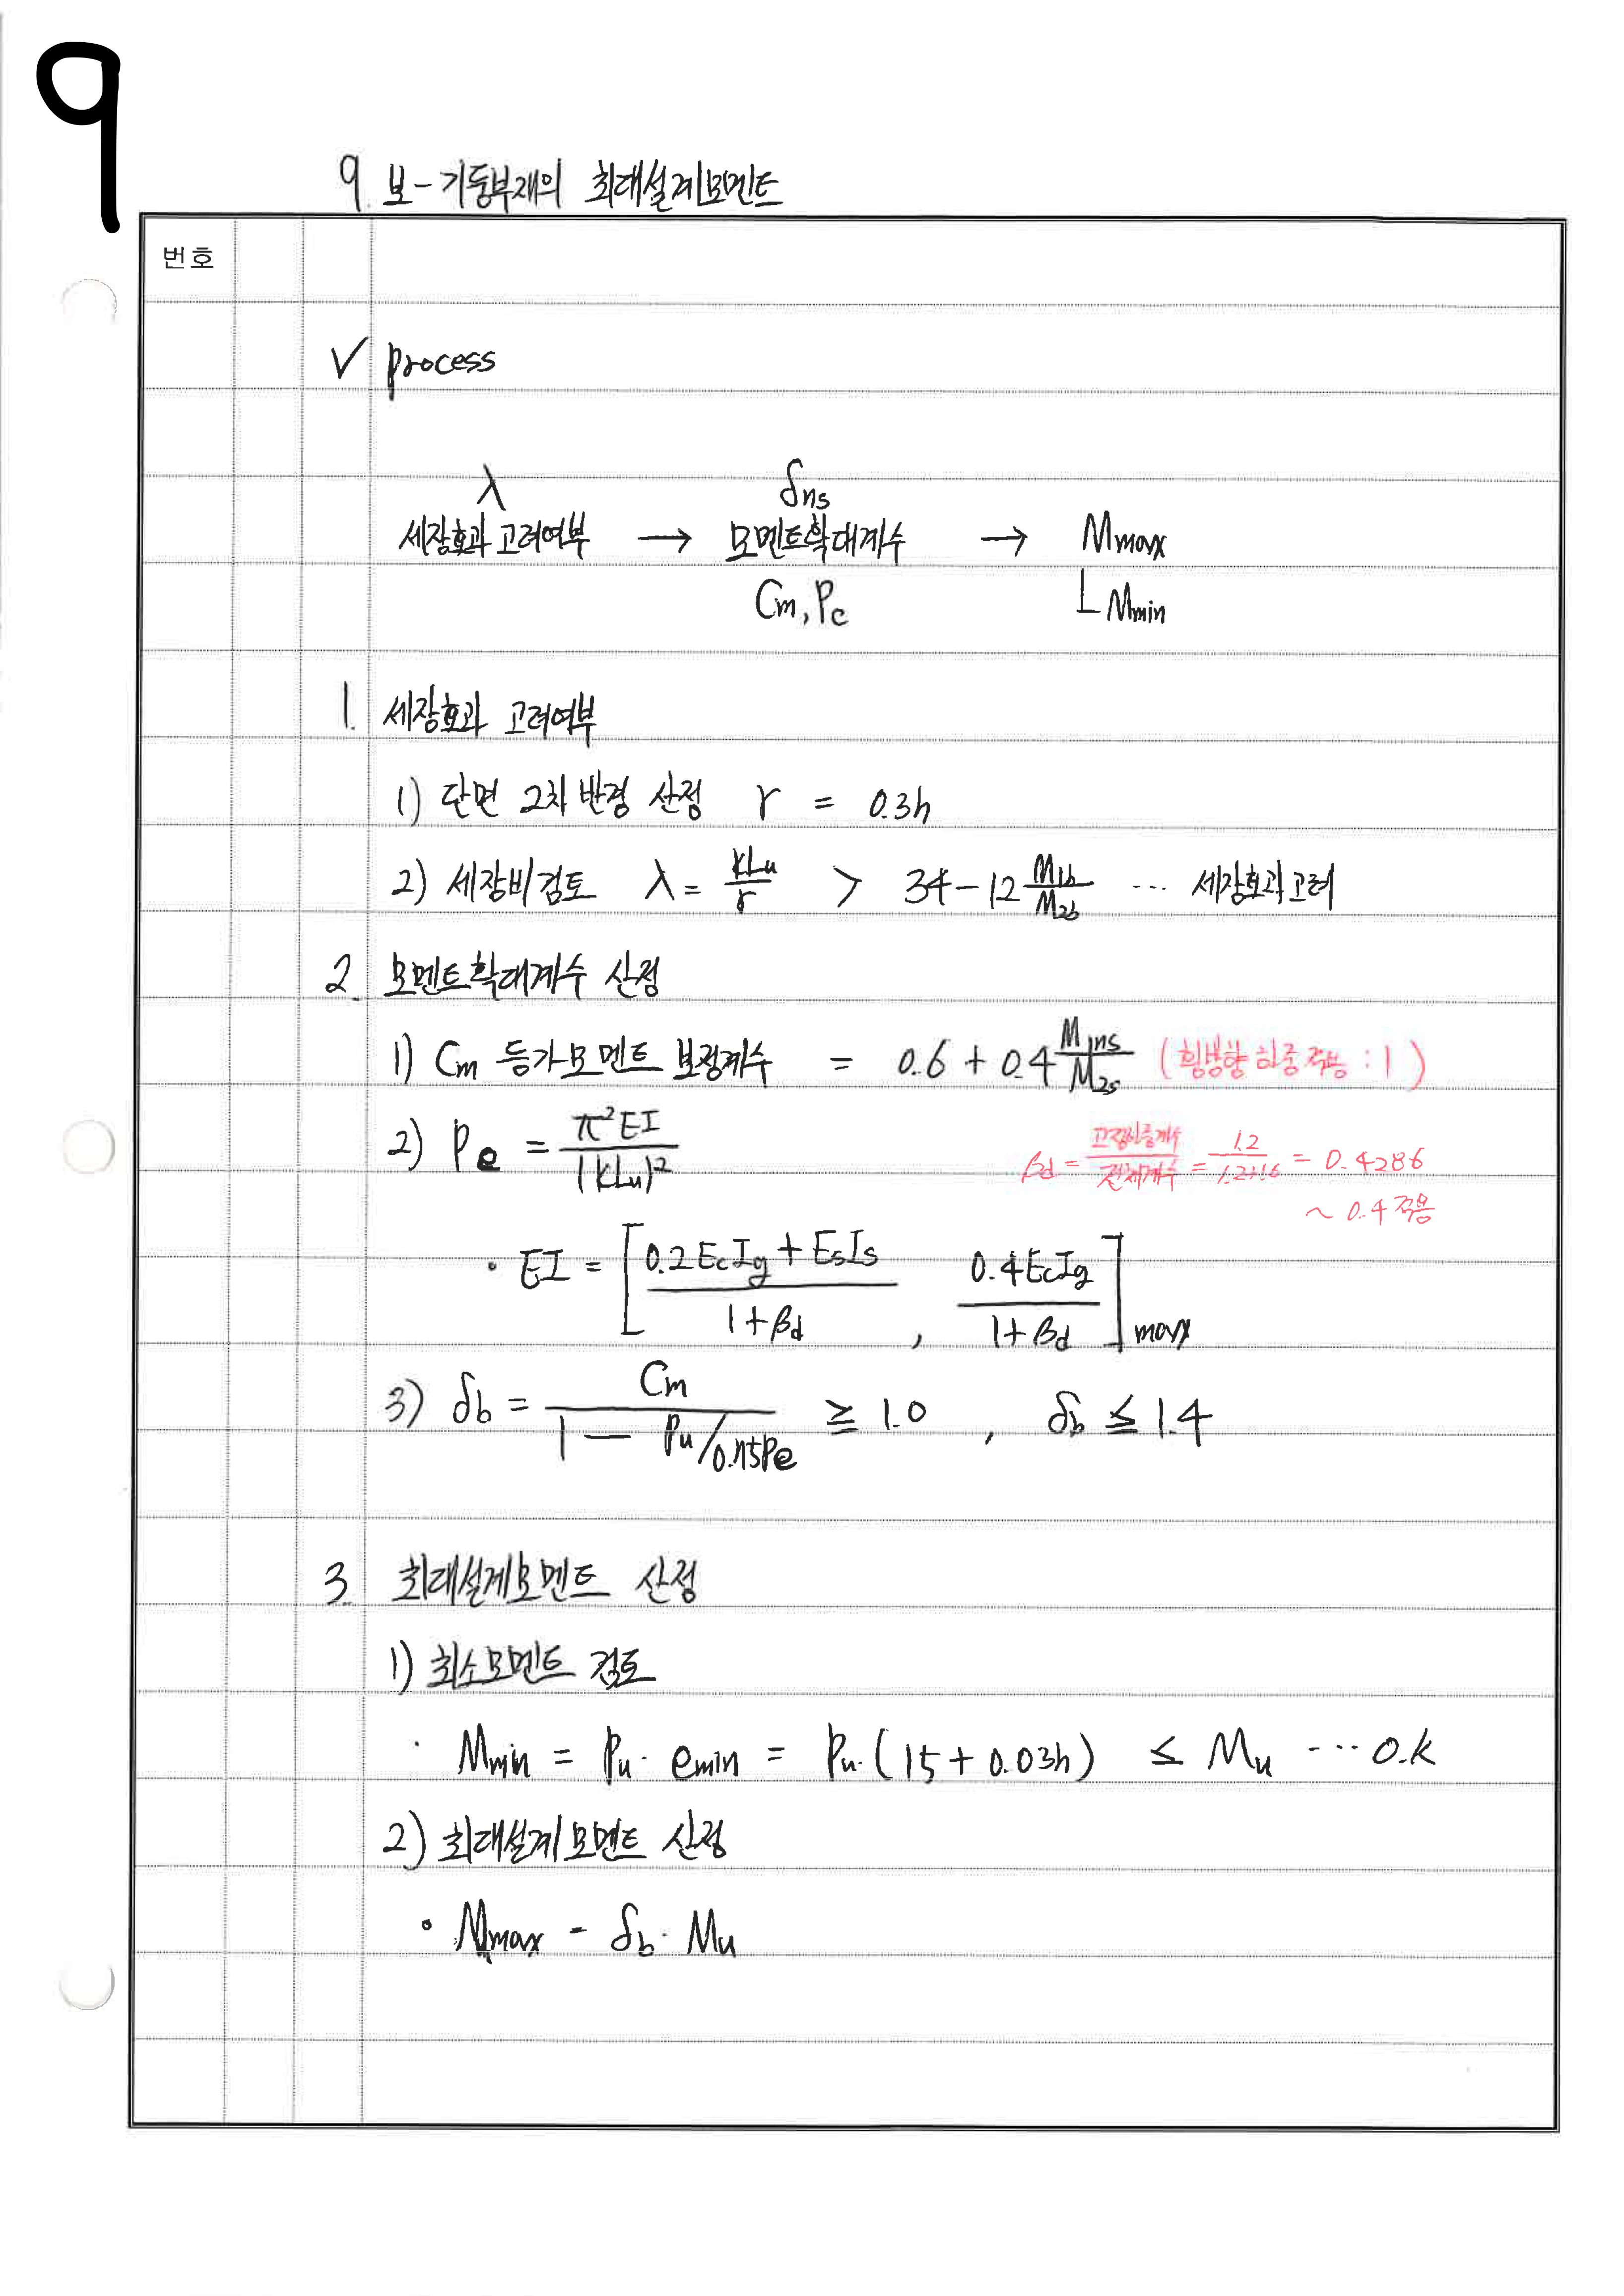 9
9. 보-기둥부재의 최대설계모멘트
번호
✓ process
λ → δns → Mmax
세장효과 고려여부 모멘트확대계수
Cm, Pc
ㄴ Mmin
1. 세장효과 고려여부
1) 단면 2차 반경 산정 r = 0.3h
2) 세장비검토 λ = kLu/r > 34-12 M1b/M2b ... 세장효과고려
2. 모멘트확대계수 산정
1) Cm 등가모멘트 보정계수 = 0.6 + 0.4 M1ns/M2s (횡방향 하중 적용 : 1)
2) Pe = π²EI/(kLu)²
βd = 고정하중계수/전체계수 = 1.2/1.2+1.6 = 0.4286
~ 0.4 적용
• EI = [0.2EcIg + EsIs/1+βd , 0.4EcIg/1+βd]max
3) δb = Cm/1 - Pu/0.75Pe ≥ 1.0 , δb ≤ 1.4
3. 최대설계모멘트 산정
1) 최소모멘트 검토
· Mmin = Pu · emin = Pu · (15 + 0.03h) ≤ Mu ... O.K
2) 최대설계모멘트 산정
• Mmax = δb · Mu